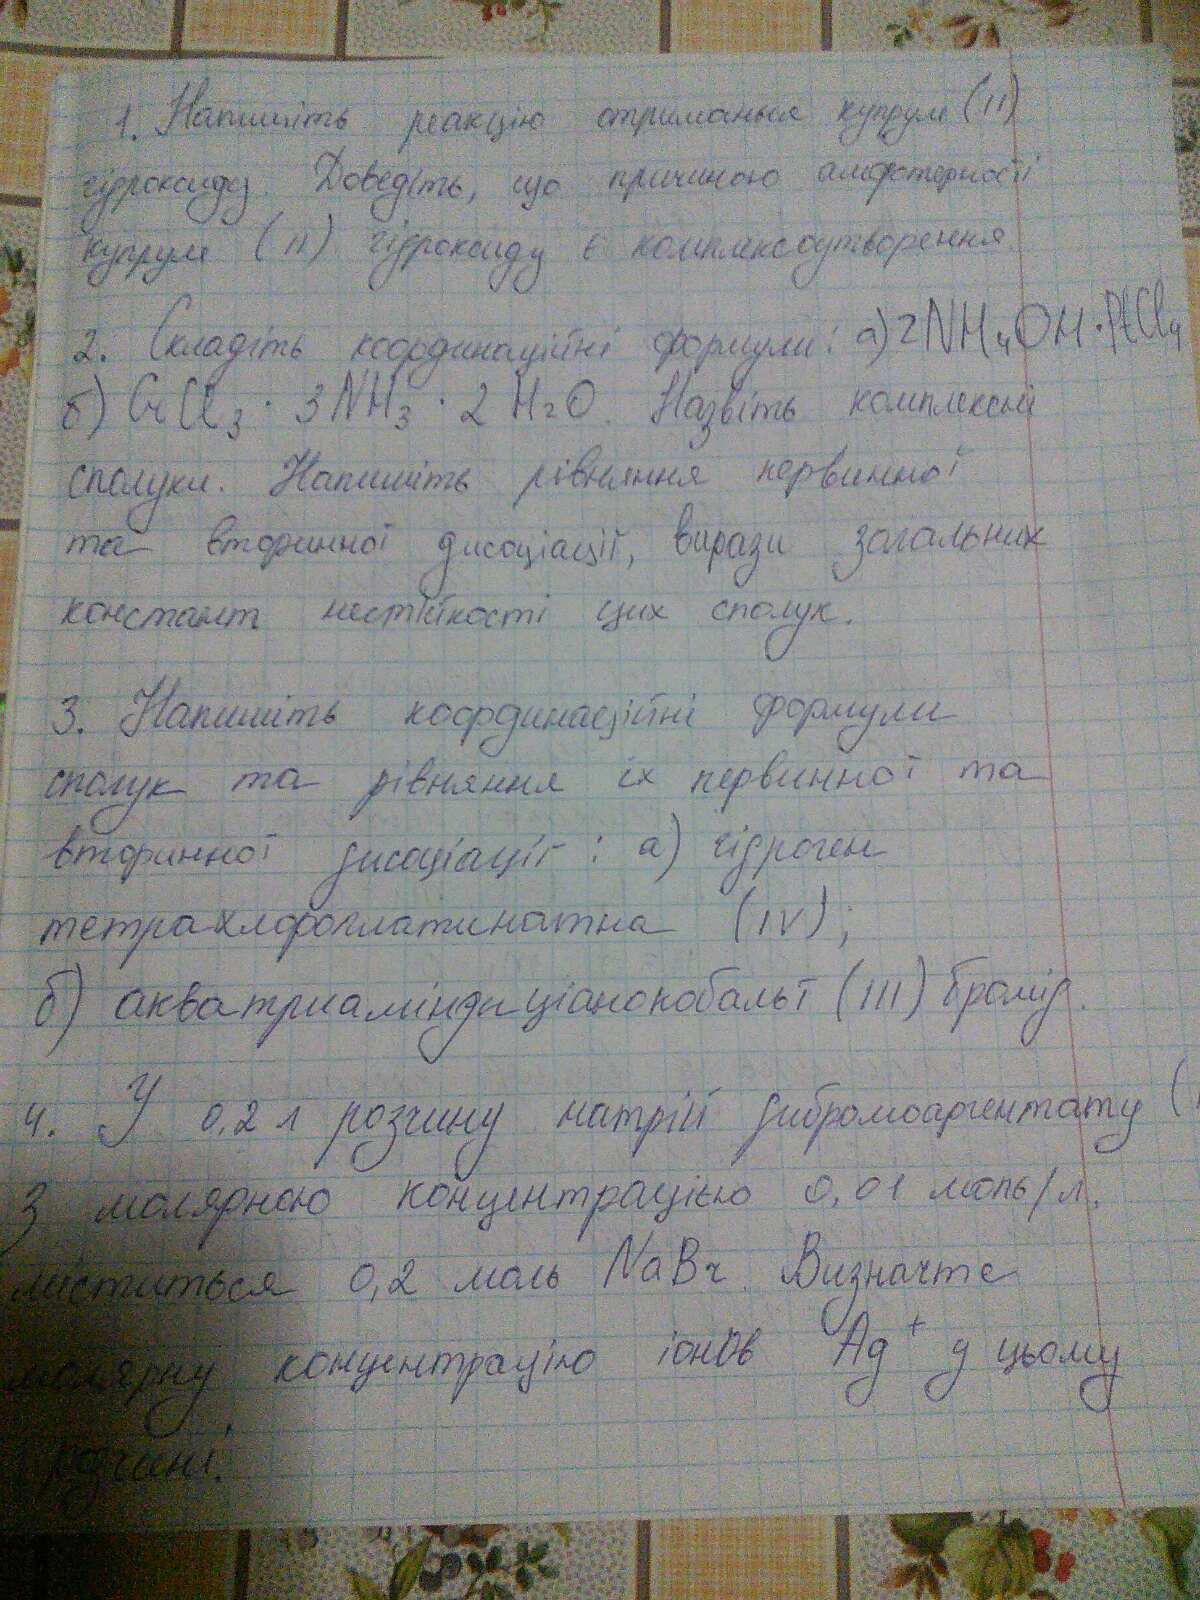 1. Напишіть реакцію отримання купрум (II)
гідроксиду. Доведіть, що причиною амфотерності
купрум (II) гідроксиду є комплексоутворення.
2. Складіть координаційні формули: а) 2NH₄OH·PtCl₄
б) CrCl₃ · 3NH₃ · 2H₂O. Назвіть комплексні
сполуки. Напишіть рівняння первинної
та вторинної дисоціації, вирази загальних
констант нестійкості цих сполук.
3. Напишіть координаційні формули
сполук та рівняння їх первинної та
вторинної дисоціації: а) гідроген
тетрахлороплатинатна (IV);
б) акватриаміндиціанокобальт (III) бромід.
4. У 0,2 л розчину натрій дибромоаргентату (
З молярною концентрацією 0,01 моль/л.
міститься 0,2 моль NaBr. Визначте
молярну концентрацію іонів Ag⁺ у цьому
розчині.